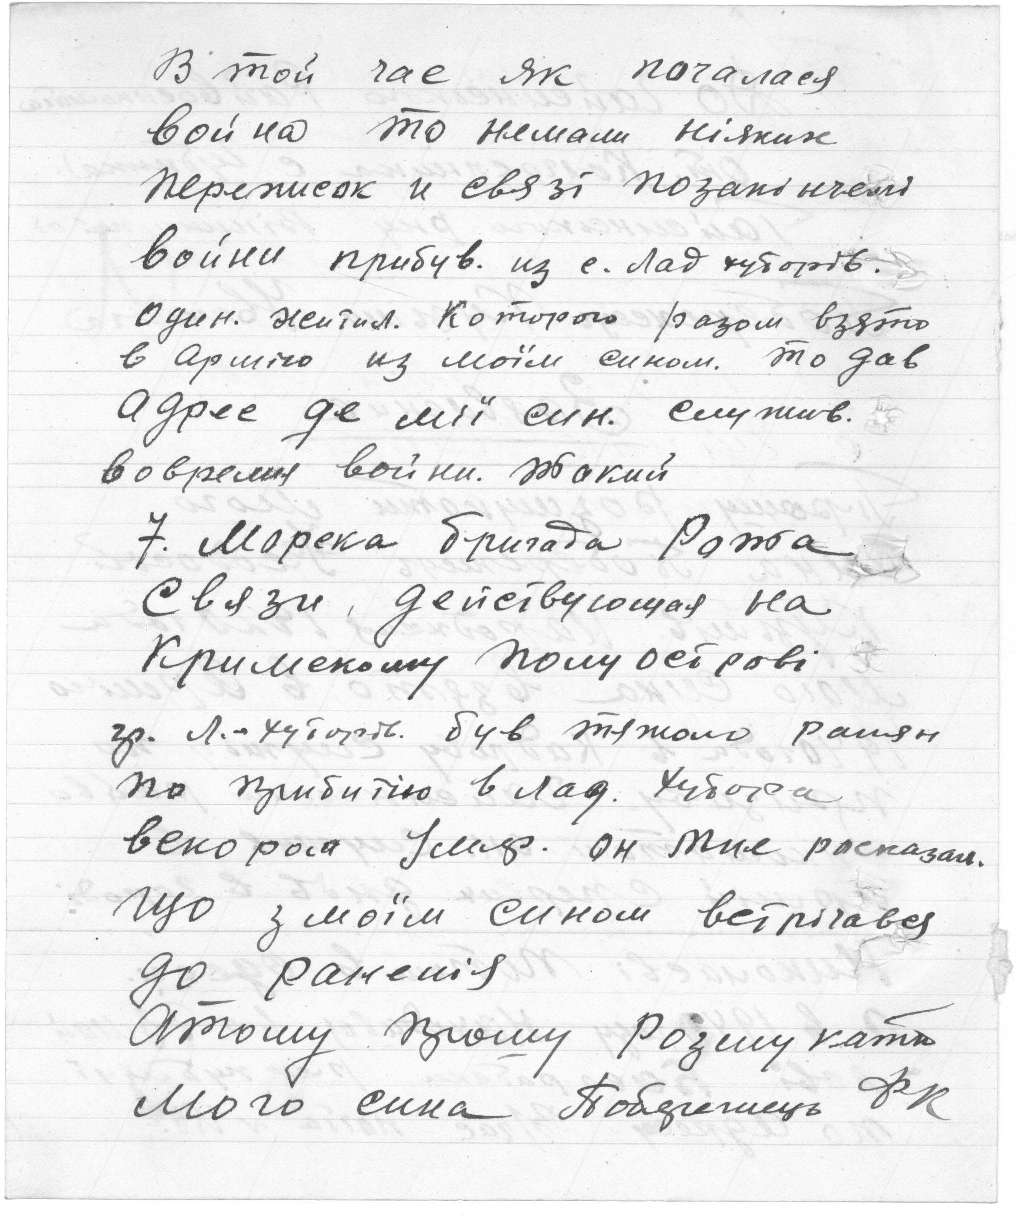 В той час як почалася
война то немали ніяких
переписок и связі позакінчені
войни прибув. из с. Лад хуторів.
один. житил. Которого разом взято
в армію из моїм сином. то дав
адрес де мій син. служив.
вовремя войни. Такий
7. Морска бригада Рота
Связи, действующая на
Кримскому полуострові
гр. Л.-хуторів. був тяжоло ранян
по прибитію в Лад. Хутора
вскором умер. он мне расказал.
що з моїм сином встрічався
до раненія
Атому прошу Розшукати
мого сина Побережець ФК